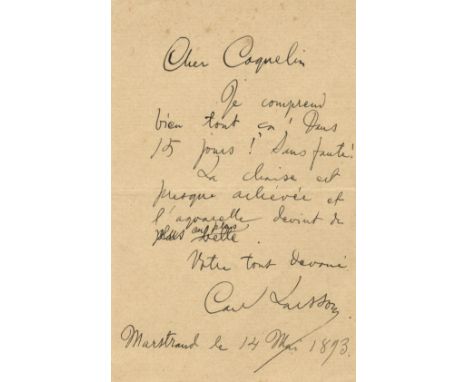 Cher Coquelin
Je comprend
bien tout ça! Dans
15 jours! Sans faute!
La chaise est
presque achévée et
l'aquarelle devint de
plus en plus belle.
Votre tout devoué
Carl Larsson
Marstrand le 14 Mai 1893.